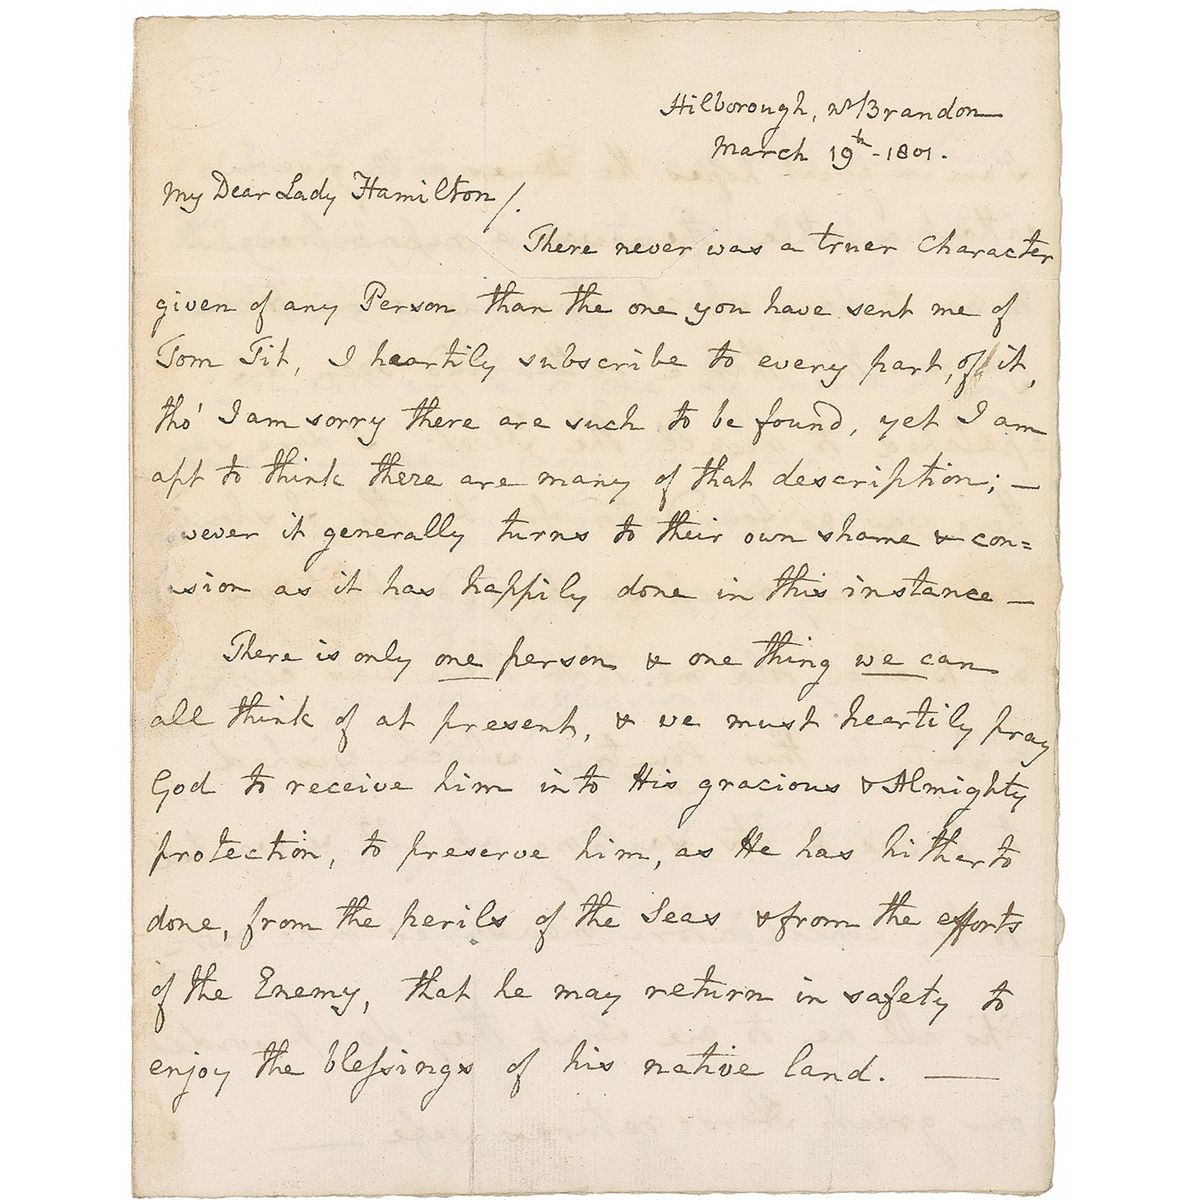 Hilborough, nr Brandon
March 19th - 1801.
My Dear Lady Hamilton/.
There never was a truer Character
given of any Person than the one you have sent me of
Tom Tit, I heartily subscribe to every part, of it,
tho' I am sorry there are such to be found, yet I am
apt to think there are many of that description; —
wever it generally turns to their own shame & con=
usion as it has happily done in this instance —
There is only one person & one thing we can
all think of at present, & we must heartily pray
God to receive him into His gracious & Almighty
protection, to preserve him, as He has hitherto
done, from the perils of the Seas & from the efforts
of the Enemy, that he may return in safety to
enjoy the blessings of his native land. —